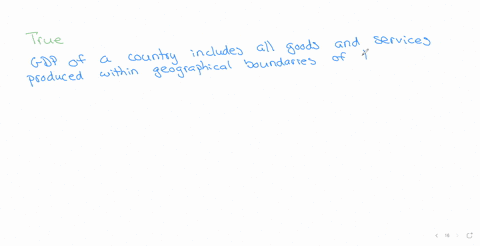 True
GDP of a country includes all goods and services
produced within geographical boundaries of